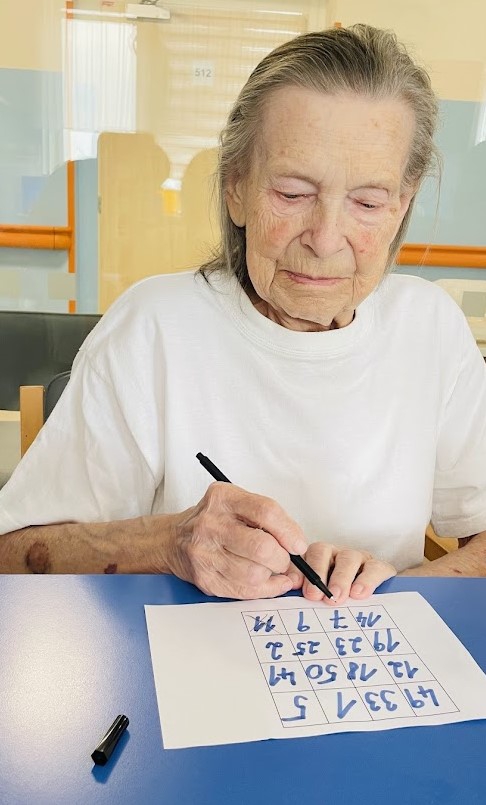 11 9 7 14
2 25 23 19
41 50 18 12
5 1 33 49
512